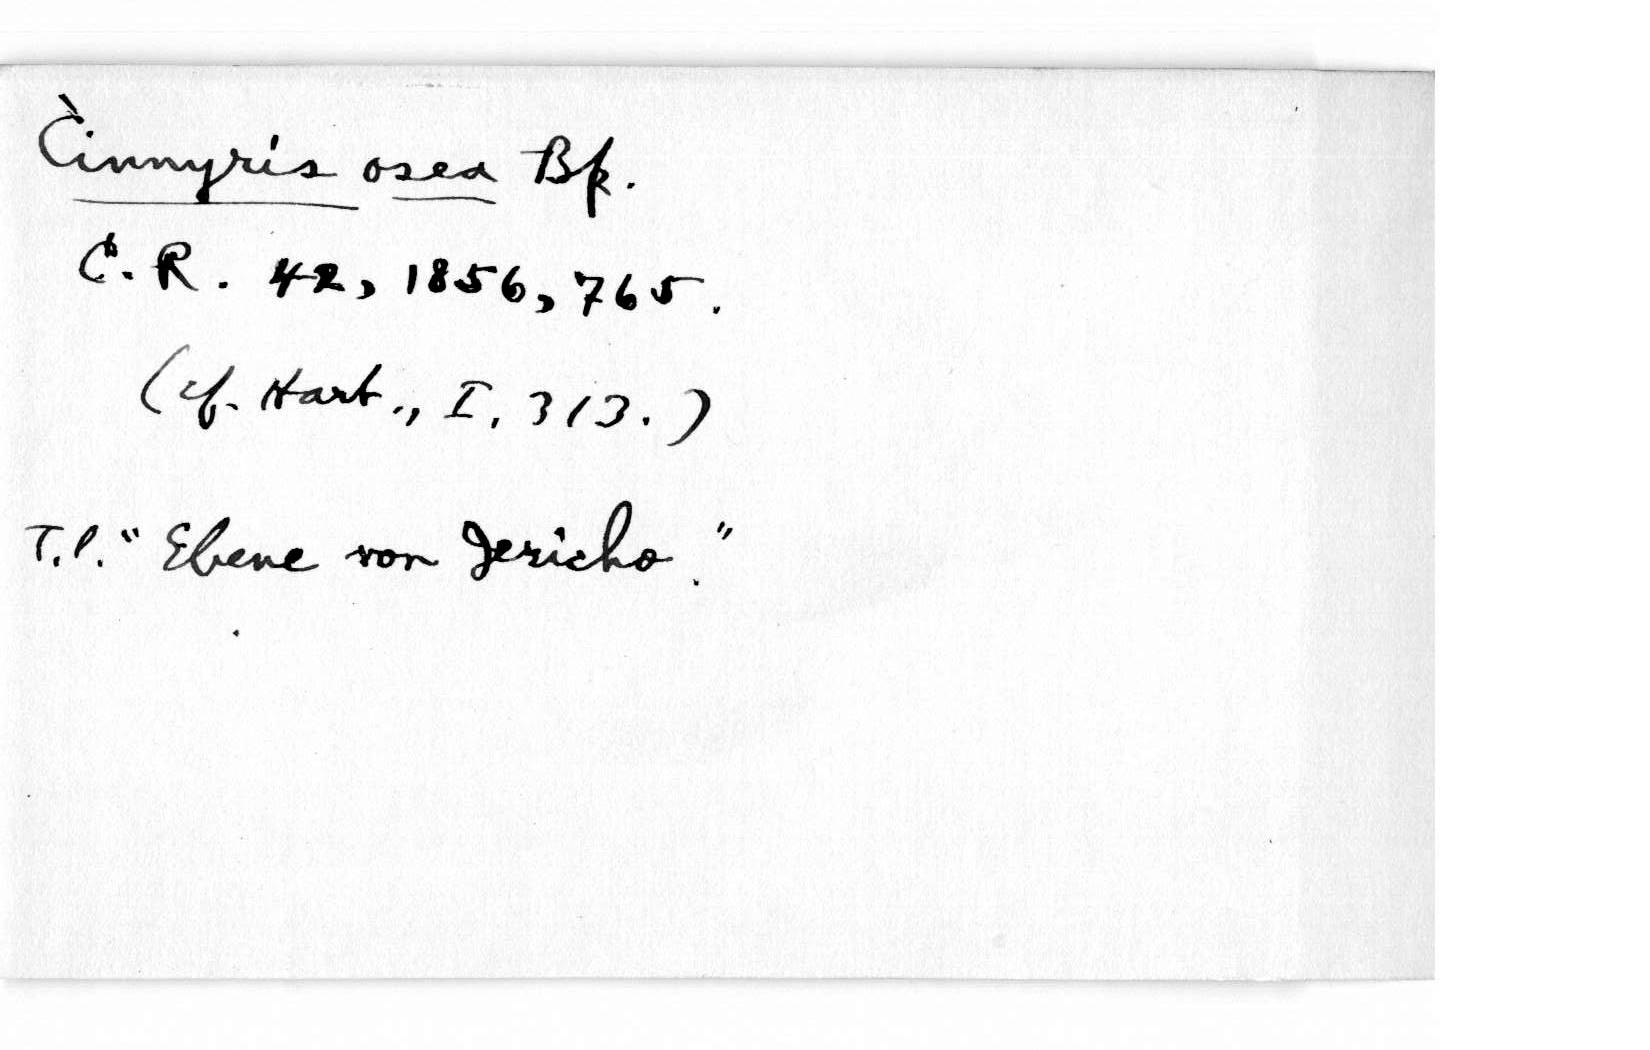 Cinnyris osea Bp.
C. R. 42, 1856, 765.
(cf. Hart., I, 313.)
T.l. "Ebene von Jericho."